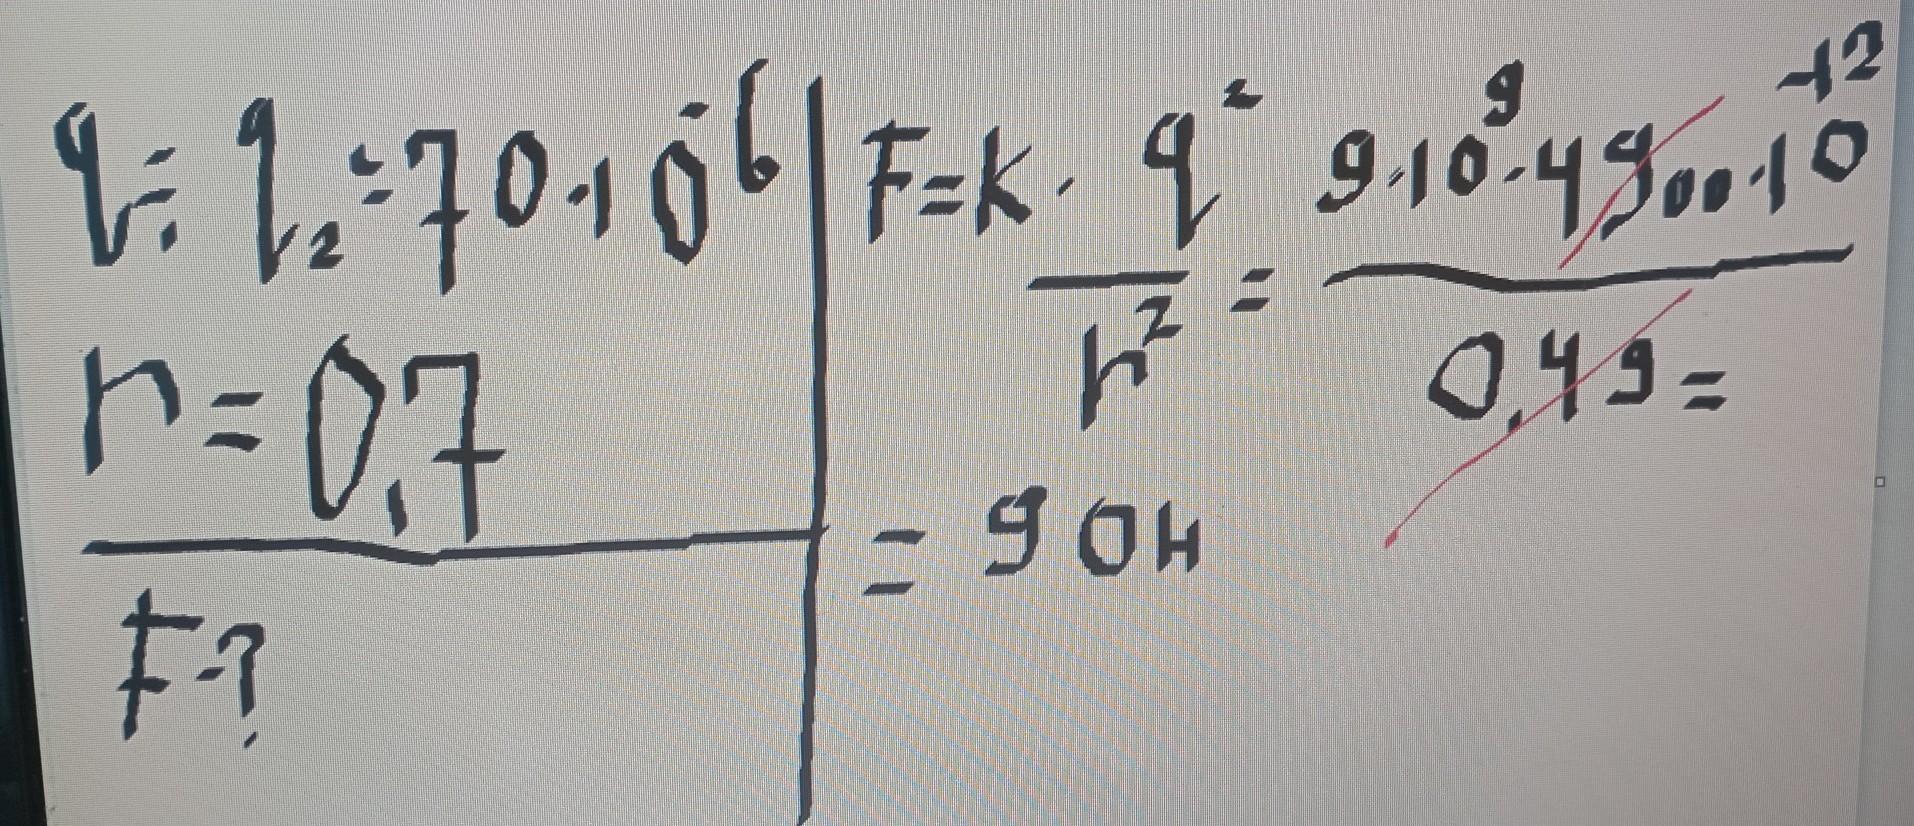 q₁ = q₂ = 70·10⁻⁶
r = 0,7
F-?
F = k · q² / r² = 9·10⁹·4900·10⁻¹² / 0,49 =
= 90H